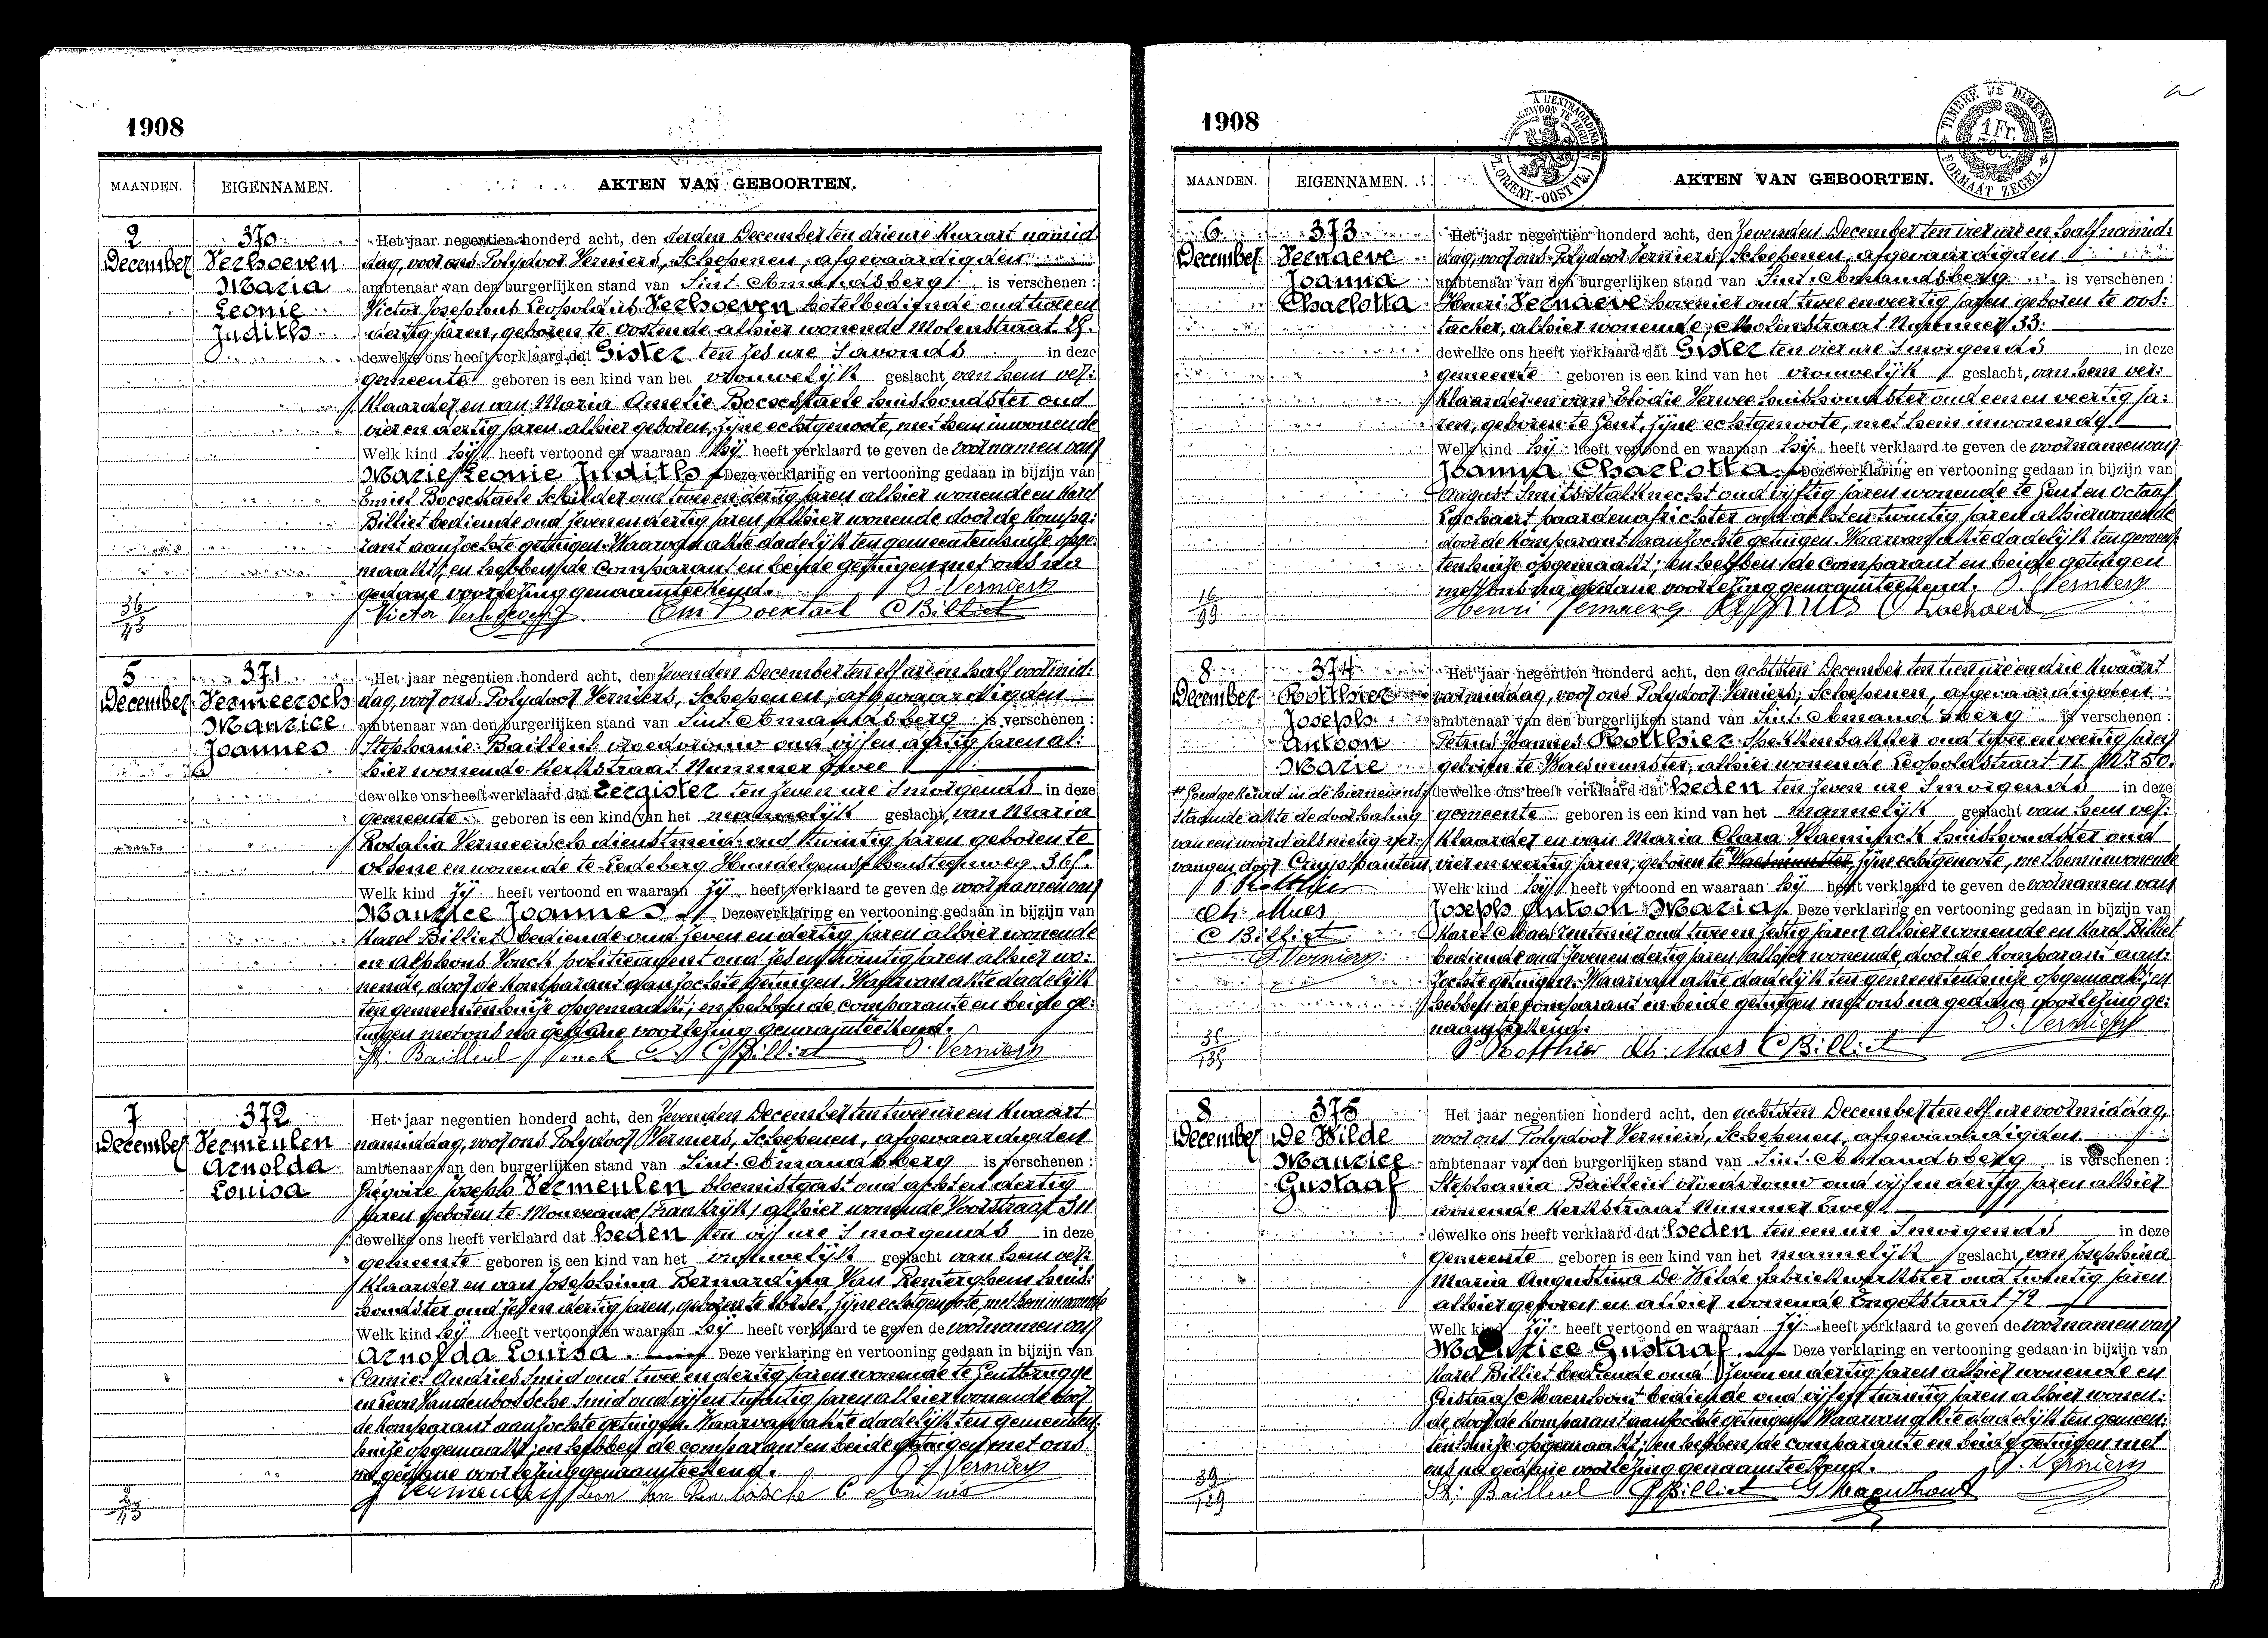 1908
MAANDEN.
EIGENNAMEN.
AKTEN VAN GEBOORTEN.
2
December
370
Verhoeven
Maria
Leonie
Judith
Het jaar negentien honderd acht, den derden December ten drie ure kwaart namid:
dag, voor ons Polydoor Verniers, Schepenen, afgevaardigden
ambtenaar van den burgerlijken stand van Sint. Amandsberg is verschenen:
Victor Josephus Leopoldus Verhoeven hotelbediende oud twee en
dertig jaren, geboren te Oostende alhier wonende Molenstraat
dewelke ons heeft verklaard dat Gister ten zes ure s'avonds in deze
gemeente geboren is een kind van het vrouwelijk geslacht van hem ver:
klaarder en van Maria Amelie Bocsestaele huishoudster oud
vier en dertig jaren alhier geboren, zijne echtgenoote, met hem inwonende
Welk kind hij heeft vertoond en waaraan hij heeft verklaard te geven de voornamen van
Marie Leonie Judith Deze verklaring en vertooning gedaan in bijzijn van
Emiel Bocsestaele Schilder oud twee en dertig jaren alhier wonende en Karel
Billiet bediende oud zeven en dertig jaren alhier wonende door de kompa:
rant aanzochte getuigen. Waarvan akte dadelijk ten gemeentenhuize opge:
maakt; en hebben de comparant en beide getuigen met ons na
gedane voorlezing genaamteekend. P. Verniers
Victor Verhoeven C Billiet
36
5
December
371
Vermeersch
Maurice
Joannes
Het jaar negentien honderd acht, den zevenden December ten elf ure en half voormid:
dag, voor ons Polydoor Verniers, Schepenen, afgevaardigden
ambtenaar van den burgerlijken stand van Sint Amandsberg is verschenen:
Stephanie Bailleul vroedvrouw oud vijf en dertig jaren al:
hier wonende Kerkstraat Nummer twee
dewelke ons heeft verklaard dat Eergister ten zeven ure s'morgends in deze
gemeente geboren is een kind van het mannelijk geslacht, van Maria
Rosalia Vermeersch dienstmeid oud twintig jaren geboren te
Olsene en wonende te Ledeberg Hundelgemschensteenweg
Welk kind zij heeft vertoond en waaraan zij heeft verklaard te geven de voornamen van
Maurice Joannes Deze verklaring en vertooning gedaan in bijzijn van
Karel Billiet bediende oud zeven en dertig jaren alhier wonende
en Alphons Vonck politieagent oud zes en twintig jaren alhier wo:
nende, door de komparant aanzochte getuigen. Waarvan akte dadelijk
ten gemeentenhuize opgemaakt; en hebben de comparante en beide ge:
tuigen met ons na gedane voorlezing genaamteekend.
St. Bailleul Vonck C Billiet P. Verniers
7
December
372
Vermeulen
Arnolda
Louisa
Het jaar negentien honderd acht, den zevenden December ten twee ure en kwaart
namiddag, voor ons Polydoor Verniers, Schepenen, afgevaardigden
ambtenaar van den burgerlijken stand van Sint. Amandsberg is verschenen:
Grégoire Joseph Vermeulen bloemistgast oud acht en dertig
jaren geboren te Mouveaux (Frankrijk) alhier wonende Voorstraat
dewelke ons heeft verklaard dat heden ten vijf ure s'morgends in deze
gemeente geboren is een kind van het vrouwelijk geslacht van hem ver:
klaarder en van Josephina Bernardina Van Renterghem huis:
houdster oud zes en dertig jaren, geboren te Ursel, zijne echtgenoote, met hem inwonende
Welk kind hij heeft vertoond en waaraan hij heeft verklaard te geven de voornamen van
Arnolda Louisa. Deze verklaring en vertooning gedaan in bijzijn van
Camiel Andries smid oud twee en dertig jaren wonende te Gentbrugge
en Leon Vandenbossche smid oud vijf en twintig jaren alhier wonende door
de komparant aanzochte getuigen. Waarvan akte dadelijk ten gemeenten:
huize opgemaakt; en hebben de comparant en beide getuigen met ons
na gedane voorlezing genaamteekend. P. Verniers
G Vermeulen Leon Van den bossche C Andries
1908
MAANDEN.
EIGENNAMEN.
AKTEN VAN GEBOORTEN.
TIMBRE DE DIMENSION
1 Fr.
FORMAAT ZEGEL
6
December
373
Vernaeve
Joanna
Charlotta
Het jaar negentien honderd acht, den zevenden December ten vier ure en half namid:
dag, voor ons Polydoor Verniers, Schepenen, afgevaardigden
ambtenaar van den burgerlijken stand van Sint. Amandsberg is verschenen:
Henri Vernaeve hovenier oud twee en veertig jaren geboren te Oos:
tacker, alhier wonende, Molenstraat Nummer 33.
dewelke ons heeft verklaard dat Gister ten vier ure s'morgends in deze
gemeente geboren is een kind van het vrouwelijk geslacht, van hem ver:
klaarder en van Elodie Verwee huishoudster oud een en veertig ja:
ren, geboren te Gent, zijne echtgenoote, met hem inwonende
Welk kind hij heeft vertoond en waaraan hij heeft verklaard te geven de voornamen van
Joanna Charlotta. Deze verklaring en vertooning gedaan in bijzijn van
August Smits stalknecht oud vijftig jaren wonende te Gent en Octaaf
Lychaert paardenafrichter oud acht en twintig jaren alhier wonende
door de komparant aanzochte getuigen. Waarvan akte dadelijk ten gemeen:
tenhuize opgemaakt; en hebben de comparant en beide getuigen
met ons na gedane voorlezing genaamteekend. P. Verniers
16
99
8
December
374
Rotthier
Joseph
Antoon
Marie
Het jaar negentien honderd acht, den achtsten December ten tien ure en drie kwaart
voormiddag, voor ons Polydoor Verniers, Schepenen, afgevaardigden
ambtenaar van den burgerlijken stand van Sint. Amandsberg is verschenen:
Petrus Joannes Rotthier Spekkenbakker oud twee en veertig jaren
geboren te Waesmunster, alhier wonende Leopoldstraat II Nr. 50.
dewelke ons heeft verklaard dat heden ten zeven ure s'morgends in deze
gemeente geboren is een kind van het mannelijk geslacht van hem ver:
klaarder en van Maria Clara Vlaeminck huishoudster oud
vier en veertig jaren, geboren te Waesmunster, zijne echtgenoote, met hem inwonende
Welk kind hij heeft vertoond en waaraan hij heeft verklaard te geven de voornamen van
Joseph Antoon Maria. Deze verklaring en vertooning gedaan in bijzijn van
Karel Maes rentenier oud twee en zestig jaren alhier wonende en Karel Billiet
bediende oud zeven en dertig jaren alhier wonende, door de komparant aan:
zochte getuigen. Waarvan akte dadelijk ten gemeentenhuize opgemaakt; en
hebben de comparant en beide getuigen met ons na gedane voorlezing ge:
naamteekend. P. Verniers
P Rotthier Ch. Maes C Billiet
Goedgekeurd in de hiernevens
staande akte de doorhaling
van een woord als nietig
P Rotthier
Ch. Maes
C Billiet
P. Verniers
8
December
375
De Wilde
Maurice
Gustaaf
Het jaar negentien honderd acht, den achtsten December ten elf ure voormiddag,
voor ons Polydoor Verniers, Schepenen, afgevaardigden
ambtenaar van den burgerlijken stand van Sint. Amandsberg is verschenen:
Stephania Bailleul vroedvrouw oud vijf en dertig jaren alhier
wonende Kerkstraat Nummer twee
dewelke ons heeft verklaard dat heden ten een ure s'morgends in deze
gemeente geboren is een kind van het mannelijk geslacht, van Josephina
Maria Augustina De Wilde fabriekwerkster oud twintig jaren
alhier geboren en alhier wonende Engelstraat 72
Welk kind zij heeft vertoond en waaraan zij heeft verklaard te geven de voornamen van
Maurice Gustaaf. Deze verklaring en vertooning gedaan in bijzijn van
Karel Billiet bediende oud zeven en dertig jaren alhier wonende en
Gustaaf Maenhout bediende oud vijf en twintig jaren alhier wonen:
de door de komparant aanzochte getuigen. Waarvan akte dadelijk ten gemeen:
tenhuize opgemaakt; en hebben de comparante en beide getuigen met
ons na gedane voorlezing genaamteekend. P. Verniers
St. Bailleul C Billiet G Maenhout
39
129